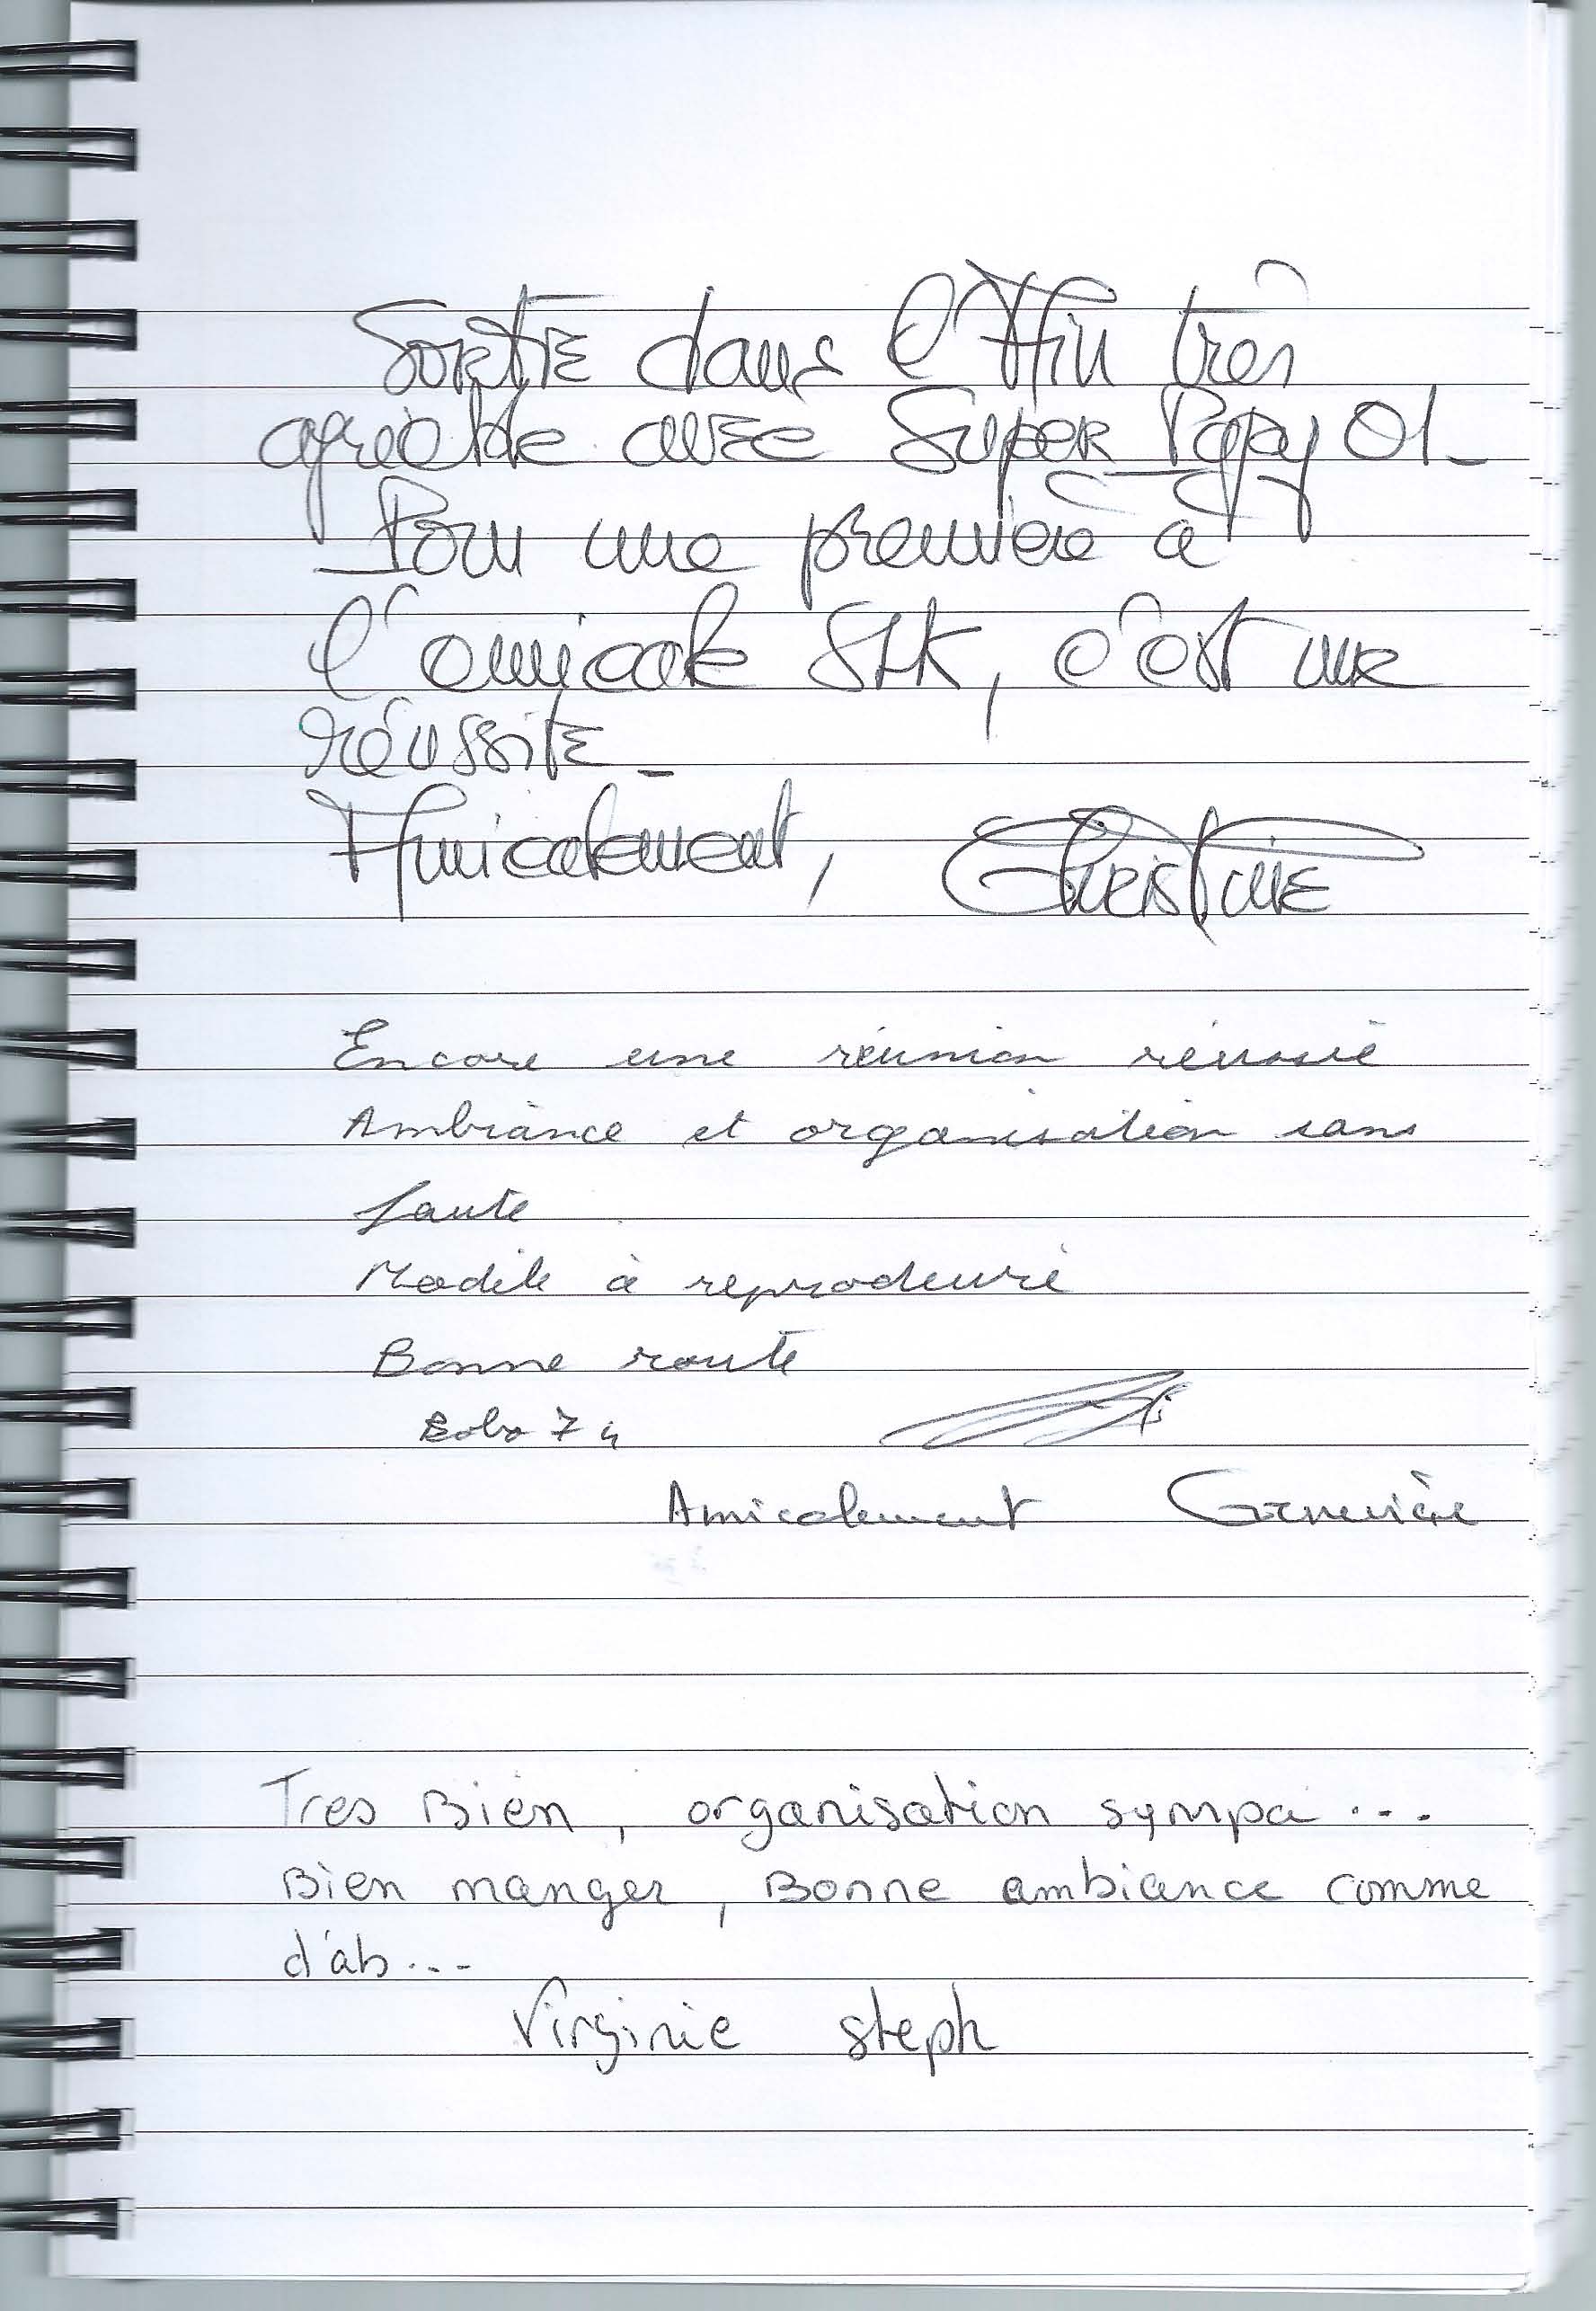 Sortie dans l'Ain très
agréable avec Super Papy 01_
Pour une première à
l'amicale SLK, c'est une
réussite_
Amicalement, Christine
Encore une réunion réussie
Ambiance et organisation sans
faute
Modèle à reproduire
Bonne route
Bobo 74
Amicalement Geneviève
Tres Bien, organisation sympa...
Bien manger, Bonne ambiance comme
d'ab...
Virginie steph